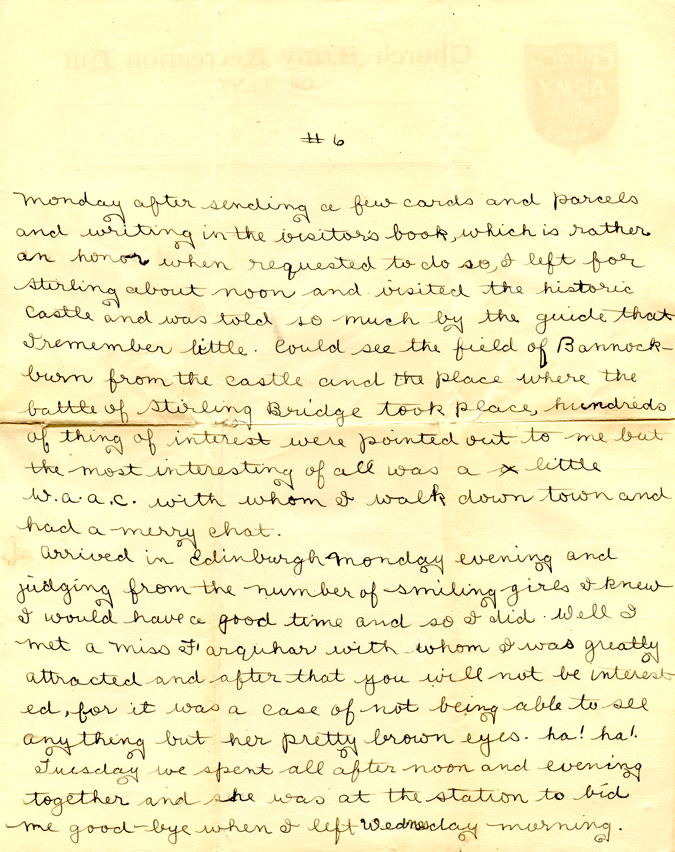 Church Army Recreation Hut
OR TENT
CHURCH
ARMY
# 6
Monday after sending a few cards and parcels
and writing in the visitor's book, which is rather
an honor when requested to do so, I left for
Stirling about noon and visited the historic
Castle and was told so much by the guide that
I remember little. Could see the field of Bannock-
burn from the castle and the place where the
battle of Stirling Bridge took place, hundreds
of thing of interest were pointed out to me but
the most interesting of all was a little
W.a.a.c. with whom I walk down town and
had a merry chat.
Arrived in Edinburgh Monday evening and
judging from the number of smiling girls I knew
I would have a good time and so I did. Well I
met a Miss Farquhar with whom I was greatly
attracted and after that you will not be interest-
ed, for it was a case of not being able to see
anything but her pretty brown eyes. ha! ha!
Tuesday we spent all after noon and evening
together and she was at the station to bid
me good-bye when I left Wednesday morning.